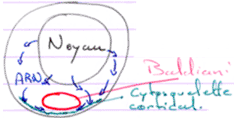 Noyau
ARN
Balbiani
Cytosquelette
cortical.